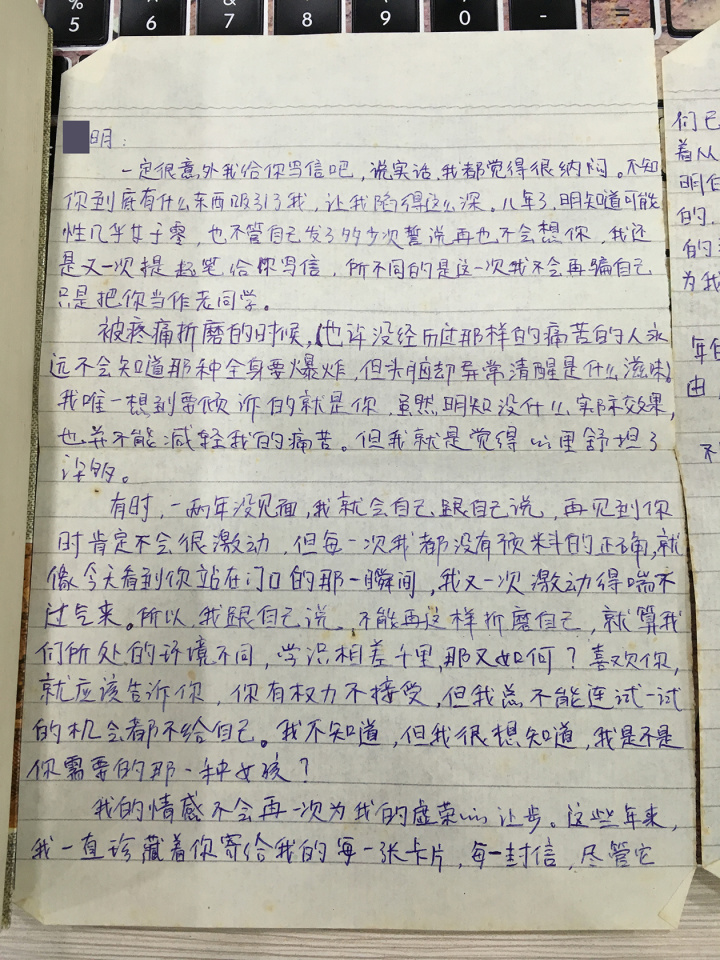 % 5
^ 6
& 7
* 8
( 9
) 0
-
=
明：
一定很意外我给你写信吧，说实话，我都觉得很纳闷。不知
你到底有什么东西吸引了我，让我陷得这么深。八年了，明知道可能
性几乎等于零，也不管自己发了多少次誓说再也不会想你，我还
是又一次提起笔给你写信，所不同的是这一次我不会再骗自己
只是把你当作老同学。
被疼痛折磨的时候，也许没经历过那样的痛苦的人永
远不会知道那种全身要爆炸，但头脑却异常清醒是什么滋味，
我唯一想到要倾诉的就是你，虽然明知没什么实际效果，
也并不能减轻我的痛苦。但我就是觉得心里舒坦了
许多。
有时，一两年没见面，我就会自己跟自己说，再见到你
时肯定不会很激动，但每一次我都没有预料的正确，就
像今天看到你站在门口的那一瞬间，我又一次激动得喘不
过气来。所以，我跟自己说，不能再这样折磨自己，就算我
们所处的环境不同，学识相差千里，那又如何？喜欢你，
就应该告诉你，你有权力不接受，但我总不能连试一试
的机会都不给自己。我不知道，但我很想知道，我是不是
你需要的那一种女孩？
我的情感不会再一次为我的虚荣心让步。这些年来，
我一直珍藏着你寄给我的每一张卡片，每一封信，尽管它
们已
着从
明白
的，
的
为我
年
由
不